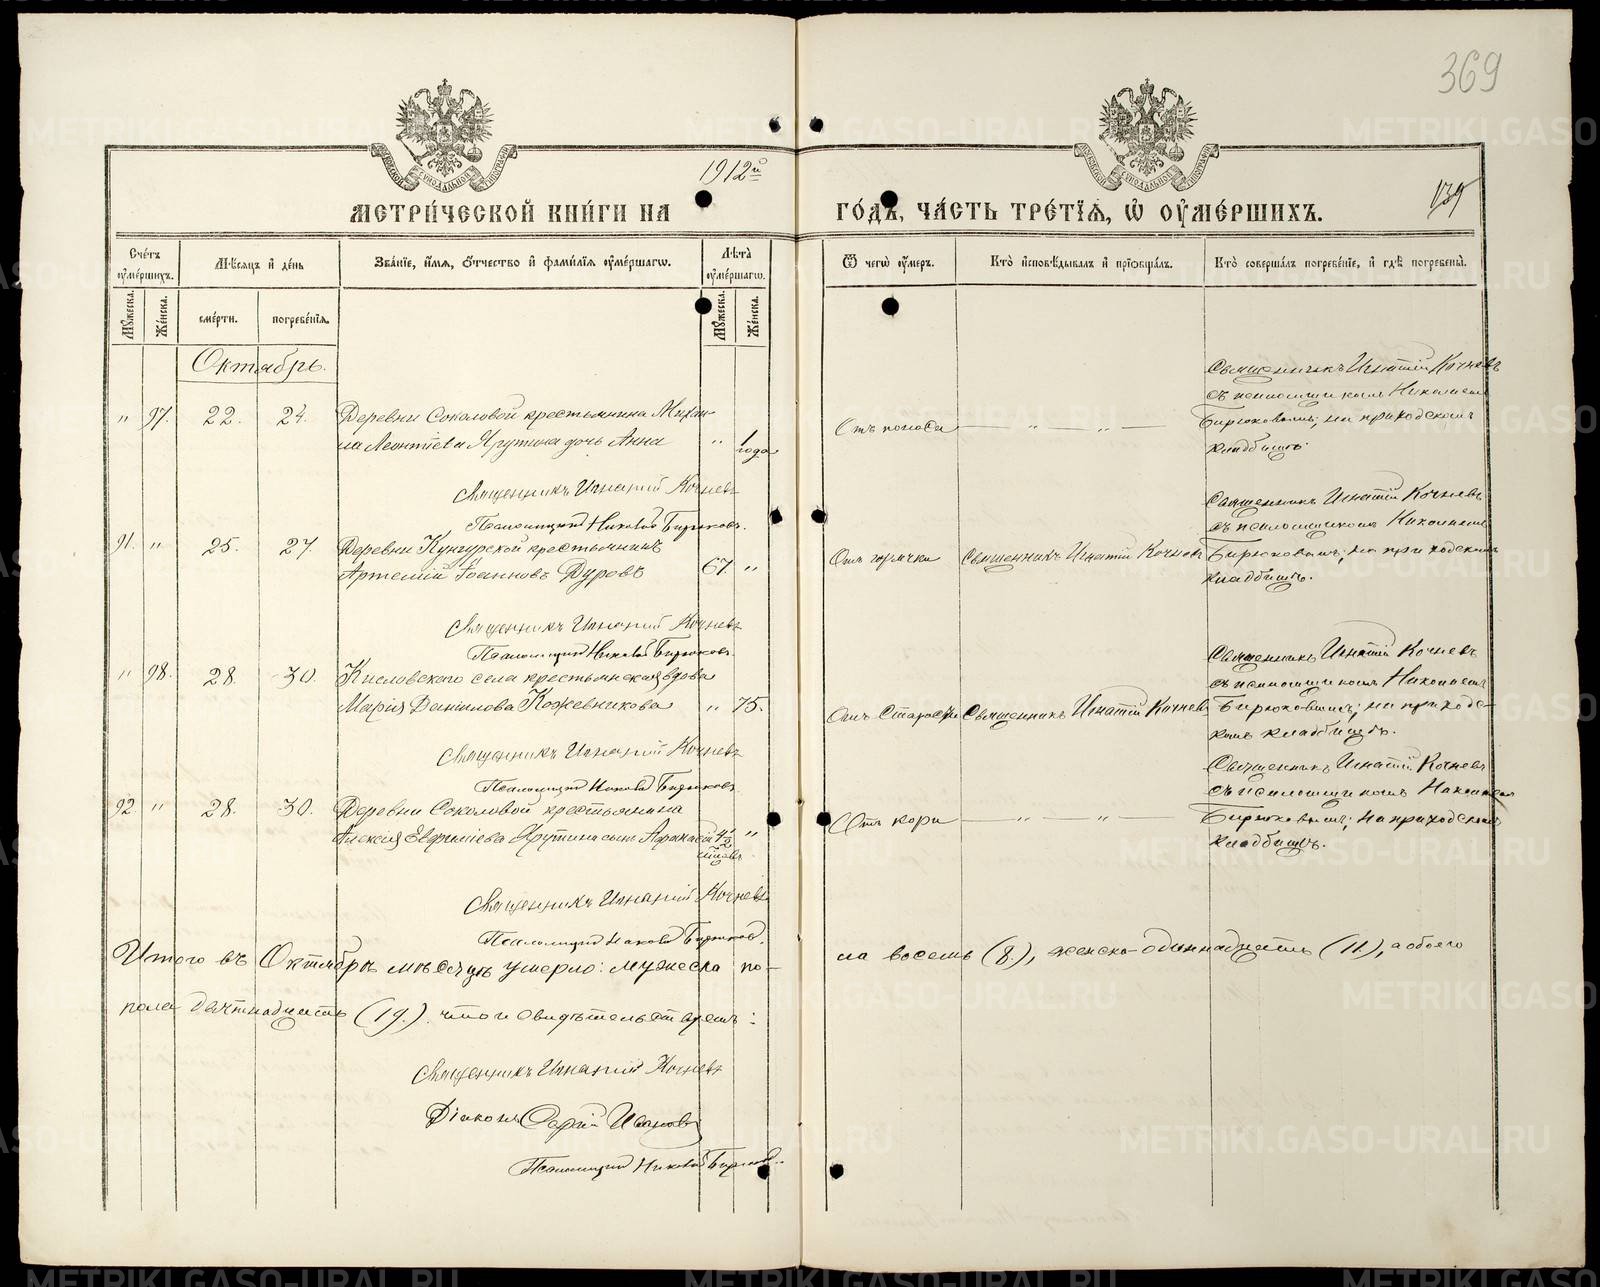 369
1912й
139
МЕТРИ́ЧЕСКОЙ КНИ́ГИ НА
ГО́ДЪ, ЧА́СТЬ ТРЕ́ТІѦ, Ѡ҆ ОУ҆МЕ́РШИХЪ.
Сче́тъ оу҆ме́ршихъ.
Мѣ́сяцъ и҆ де́нь
Зва́нїе, и҆́мя, ѻ҆́тчество и҆ фами́лїя оу҆ме́ршагѡ.
Лѣ́та оу҆ме́ршагѡ.
Ѿ чегѡ̀ оу҆́меръ.
Кто̀ и҆сповѣ́дывалъ и҆ прїѡбща́лъ.
Кто̀ соверша́лъ погребе́нїе, и҆ гдѣ̀ погребены̀.
Мꙋ́жеска.
Же́нска.
сме́рти.
погребе́нїя.
Мꙋ́жеска.
Же́нска.
Октябрь.
" 97. 22. 24. Деревни Соколовой крестьянина Михаи-
ла Леонтіева Крутина дочь Анна " 1 года
Отъ поноса — " — " —
Священникъ Игнатій Кочневъ
съ псаломщикомъ Николаемъ
Бирюковымъ; на приходскомъ
кладбищѣ.
Священникъ Игнатій Кочневъ
Псаломщикъ Николай Бирюковъ.
91. " 25. 27. Деревни Кунгурской крестьянинъ
Артемій Іоанновъ Дуровъ 67. "
Отъ горячки Священникъ Игнатій Кочневъ
Священникъ Игнатій Кочневъ
съ псаломщикомъ Николаемъ
Бирюковымъ; на приходскомъ
кладбищѣ.
Священникъ Игнатій Кочневъ
Псаломщикъ Николай Бирюковъ.
" 98. 28. 30. Кисловскаго села крестьянская вдова
Марія Данилова Кожевникова " 75.
Отъ старости Священникъ Игнатій Кочневъ
Священникъ Игнатій Кочневъ
съ псаломщикомъ Николаемъ
Бирюковымъ; на приходс-
комъ кладбищѣ.
Священникъ Игнатій Кочневъ
Псаломщикъ Николай Бирюковъ.
92 " 28. 30. Деревни Соколовой крестьянина
Алексія Евфиміева Крутина сынъ Афанасій 4½ "
Отъ кори — " — " —
Священникъ Игнатій Кочневъ
съ псаломщикомъ Николаемъ
Бирюковымъ; на приходскомъ
кладбищѣ.
Священникъ Игнатій Кочневъ
Псаломщикъ Николай Бирюковъ.
Итого въ Октябрѣ мѣсяцѣ умерло: мужеска по-
ла восемь (8.), женска одиннадцать (11.), а обоего
пола девятнадцать (19.). что и свидѣтельствуемъ:
Священникъ Игнатій Кочневъ
Діаконъ Сергій Ивановъ
Псаломщикъ Николай Бирюковъ.
METRIKI.GASO-URAL.RU